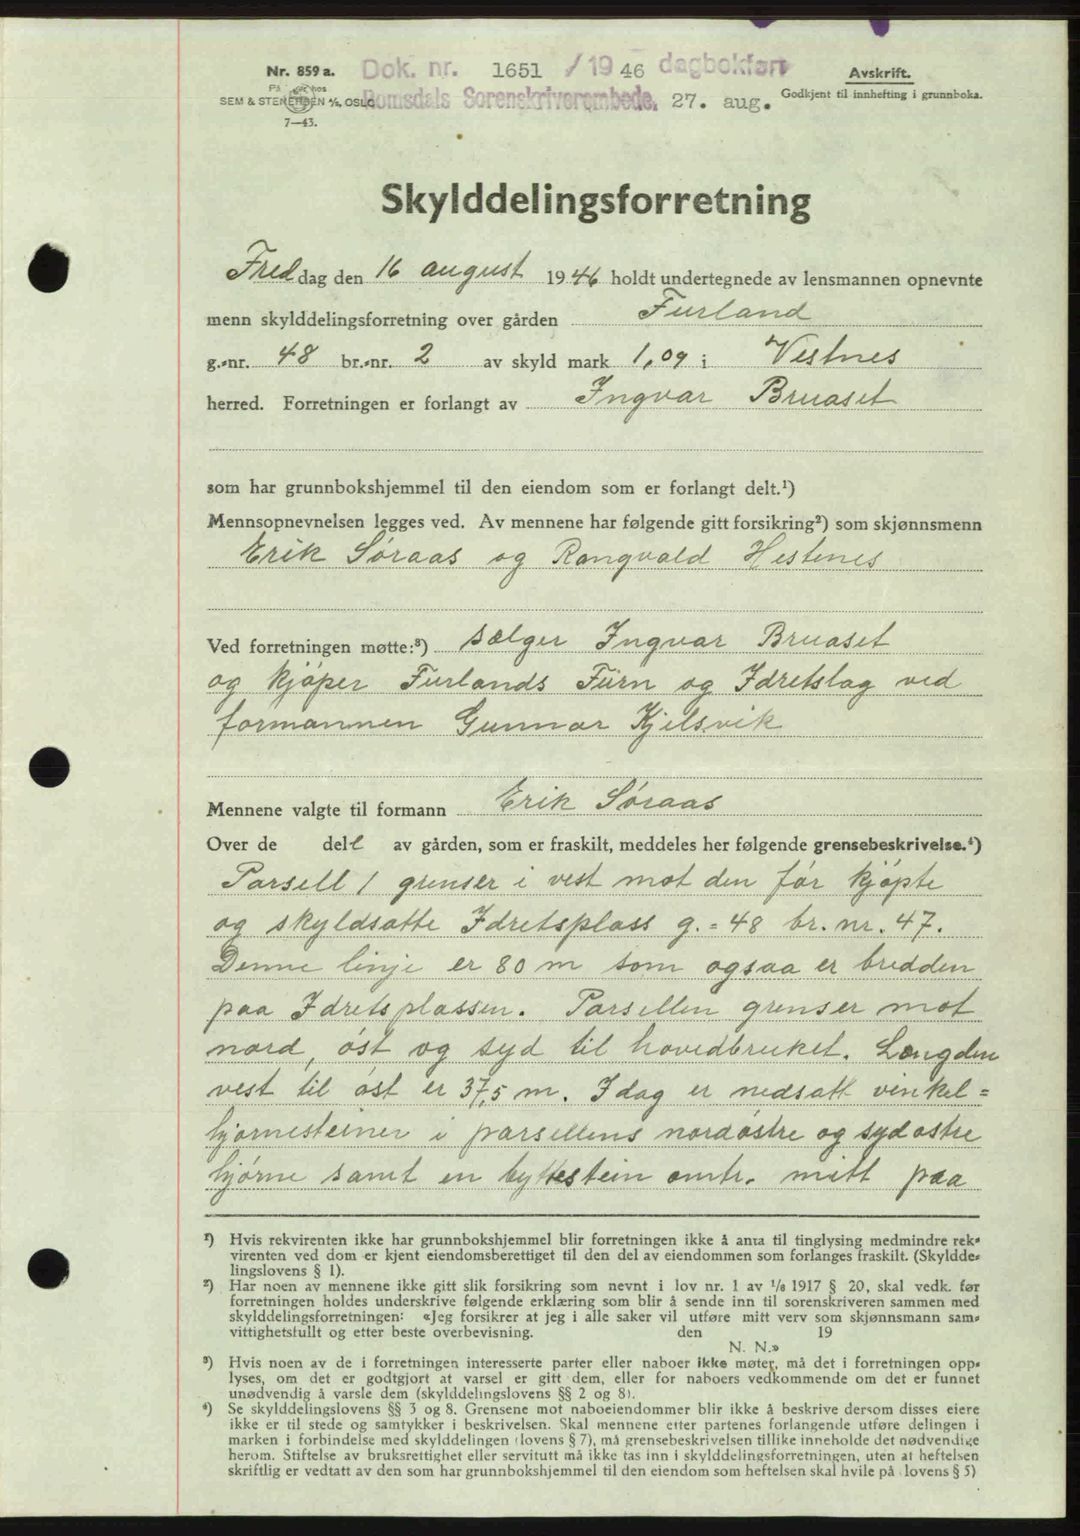 Nr. 859 a. Dok. nr. 1651 /19 46 dagbokført Avskrift.
SEM & STENERSEN A/S, OSLO Romsdals Sorenskriverembede, 27. aug. Godkjent til innhefting i grunnboka.
7—43.
Skylddelingsforretning
Freddag den 16 august 1946 holdt undertegnede av lensmannen opnevnte
menn skylddelingsforretning over gården Furland
g.-nr. 48 br.-nr. 2 av skyld mark 1,09 i Vestnes
herred. Forretningen er forlangt av Ingvar Bruaset
som har grunnbokshjemmel til den eiendom som er forlangt delt.¹)
Mennsopnevnelsen legges ved. Av mennene har følgende gitt forsikring²) som skjønnsmenn
Erik Søraas og Rangvald Hestenes
Ved forretningen møtte:³) sælger Ingvar Bruaset
og kjøper Furlands Turn og Idretslag ved
formannen Gunnar Kjelsvik
Mennene valgte til formann Erik Søraas
Over de del l av gården, som er fraskilt, meddeles her følgende grensebeskrivelse.⁴)
Parsell 1 grenser i vest mot den før kjøpte
og skyldsatte Idretsplass g. = 48 br. nr. 47.
Denne linje er 80 m som ogsaa er bredden
paa Idretsplassen. Parsellen grenser mot
nord, øst og syd til hovedbruket. Længden
vest til øst er 37,5 m. Idag er nedsatt vinkel=
hjørnesteiner i parsellens nordøstre og sydøstre
hjørne samt en byttestein omtr. mitt paa
¹) Hvis rekvirenten ikke har grunnbokshjemmel blir forretningen ikke å anta til tinglysing medmindre rek-
virenten ved dom er kjent eiendomsberettiget til den del av eiendommen som forlanges fraskilt. (Skyldde-
lingslovens § 1).
²) Har noen av mennene ikke gitt slik forsikring som nevnt i lov nr. 1 av ¹/₆ 1917 § 20, skal vedk. før
forretningen holdes underskrive følgende erklæring som blir å sende inn til sorenskriveren sammen med
skylddelingsforretningen: «Jeg forsikrer at jeg i alle saker vil utføre mitt verv som skjønnsmann sam-
vittighetsfullt og etter beste overbevisning. den 19
N. N.»
³) Hvis noen av de i forretningen interesserte parter eller naboer ikke møter, må det i forretningen opp-
lyses, om det er godtgjort at varsel er gitt dem, eller for naboers vedkommende om det er funnet
unødvendig å varsle dem (skylddelingslovens §§ 2 og 8).
⁴) Se skylddelingslovens §§ 3 og 8. Grensene mot naboeiendommer blir ikke å beskrive dersom disses eiere
ikke er til stede og samtykker i beskrivelsen. Skal mennene etter partenes forlangende utføre delingen i
marken i forbindelse med skylddelingen (lovens § 7), må grensebeskrivelsen tillike inneholde det nødvendige
herom. Stiftelse av bruksrettighet eller servitutt må ikke tas inn i skylddelingsforretningen, uten at heftelsen
skriftlig er vedtatt av den som har grunnbokshjemmel til den eiendom som heftelsen skal hvile på (lovens § 5)